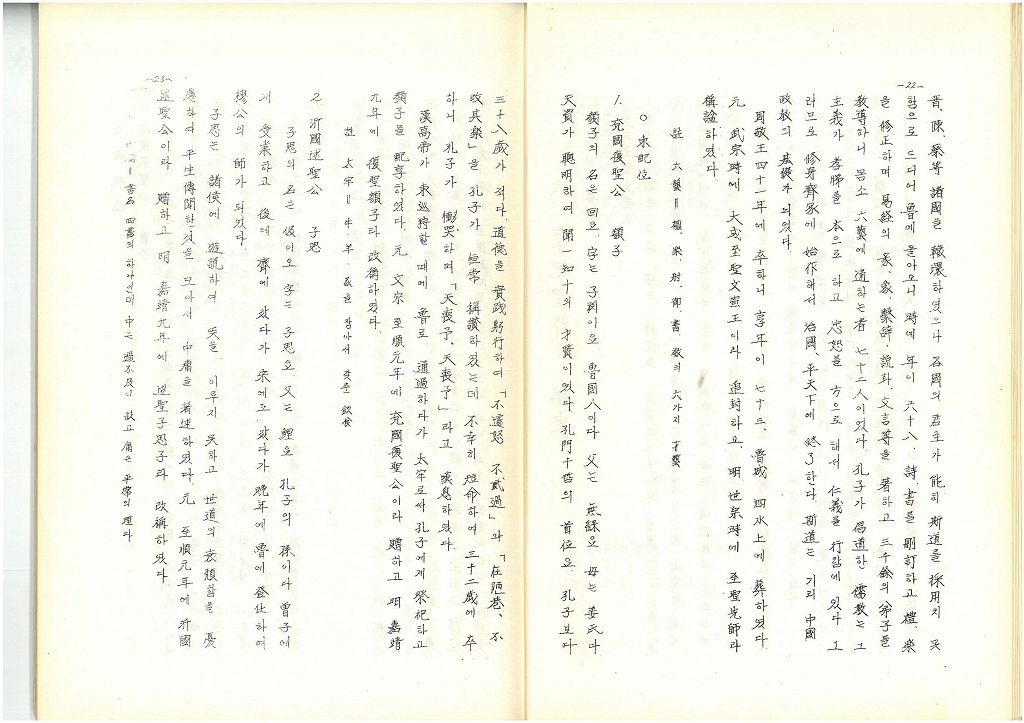 -22-
晋、陳、蔡等 諸國을 轍環하였으나 各國의 君主가 能히 斯道를 採用치 못
함으로 드디어 魯에 돌아오니 時에 年이 六十八、詩、書를 刪訂하고 禮、樂
을 修正하며 易經의 彖、象、繫辞、說卦、文言等을 著하고 三千餘의 弟子를
敎導하니 몸소 六藝에 通하는者 七十二人이었다 孔子가 倡道한 儒敎는 그
主義가 孝悌를 本으로 하고 忠恕를 方으로 해서 仁義를 行함에 있다 그
러므로 修身齊家에 始作해서 治國、平天下에 終了한다 斯道는 기리 中國
政敎의 基礎가 되었다
周敬王四十一年에 卒하니 享年이 七十三、魯城 泗水上에 葬하였다
元 武宗時에 大成至聖文宣王이라 追封하고、明 世宗時에 至聖先師라
稱諡하였다.
註 六藝=禮、樂、射、御、書、数의 六가지 才藝
○ 東配位
1. 兗國復聖公 顔子
顔子의 名은 回요、字는 子淵이요 魯國人이다 父는 無繇요 母는 姜氏다
天資가 聰明하여 聞一知十의 才質이었다 孔門十哲의 首位요、孔子보다
-23-
三十八歲가 적다、道德을 實践躬行하여 「不遷怒 不貳過」와 「在陋巷、不
改其樂」을 孔子가 恒常 稱讚하였는데 不幸히 短命하여 三十二歲에 卒
하니 孔子가 慟哭하며 「天喪予、天喪予」라고 嘆息하였다.
漢高帝가 東巡狩할 때에 魯로 通過하다가 太牢로서 孔子에게 祭祀하고
顔子를 配享하였다. 元 文宗 至順元年에 兗國復聖公이라 贈하고 明 嘉靖
九年에 復聖顔子라 改稱하였다.
註 太牢=牛、羊、豕를 잡아서 갖춘 飮食
2. 沂國述聖公 子思
子思의 名은 伋이오 字는 子思요 父는 鯉요 孔子의 孫이다 曾子에
게 受業하고 後에 齊에 갔다가 宋에도 갔다가 晩年에 魯에 登仕하여
穆公의 師가 되었다.
子思는 諸侯에 遊說하여 뜻을 이루지 못하고 世道의 衰頹함을 憂
慮하여 平生傳聞한것을 모아서 中庸을 著述하였다. 元 至順元年에 沂國
述聖公이라 贈하고 明 嘉靖九年에 述聖子思子라 改稱하였다.
書名 四書의 하나인데 中은 過不及이 없고 庸은 平常의 理다